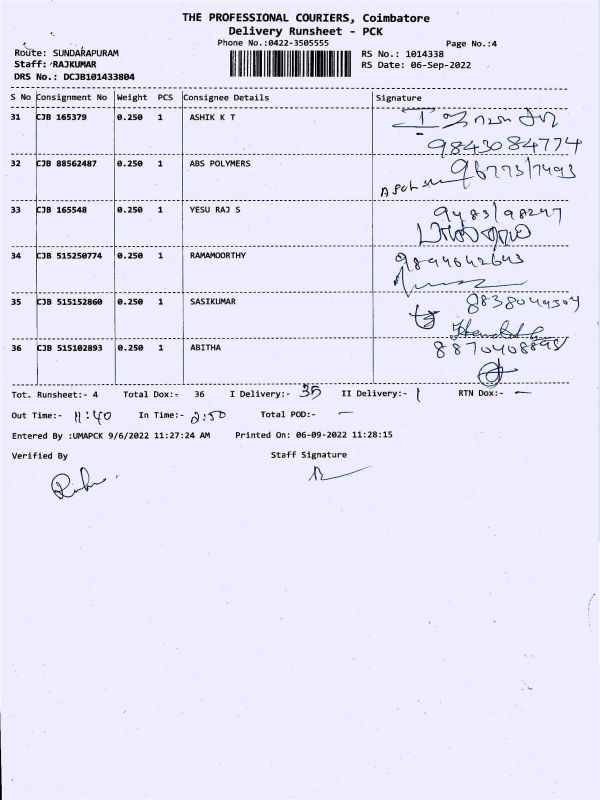 THE PROFESSIONAL COURIERS, Coimbatore
Delivery Runsheet - PCK
Phone No.:0422-3505555 Page No.:4
Route: SUNDARAPURAM RS No.: 1014338
Staff: RAJKUMAR RS Date: 06-Sep-2022
DRS No.: DCJB101433804
S No Consignment No Weight PCS Consignee Details Signature
31 CJB 165379 0.250 1 ASHIK K T
9843084774
32 CJB 88562487 0.250 1 ABS POLYMERS
33 CJB 165548 0.250 1 YESU RAJ S
34 CJB 515250774 0.250 1 RAMAMOORTHY
35 CJB 515152860 0.250 1 SASIKUMAR
36 CJB 515102893 0.250 1 ABITHA
Tot. Runsheet:- 4 Total Dox:- 36 I Delivery:- 35 II Delivery:- 1 RTN Dox:- —
Out Time:- 11:40 In Time:- 2:50 Total POD:- —
Entered By :UMAPCK 9/6/2022 11:27:24 AM Printed On: 06-09-2022 11:28:15
Verified By Staff Signature